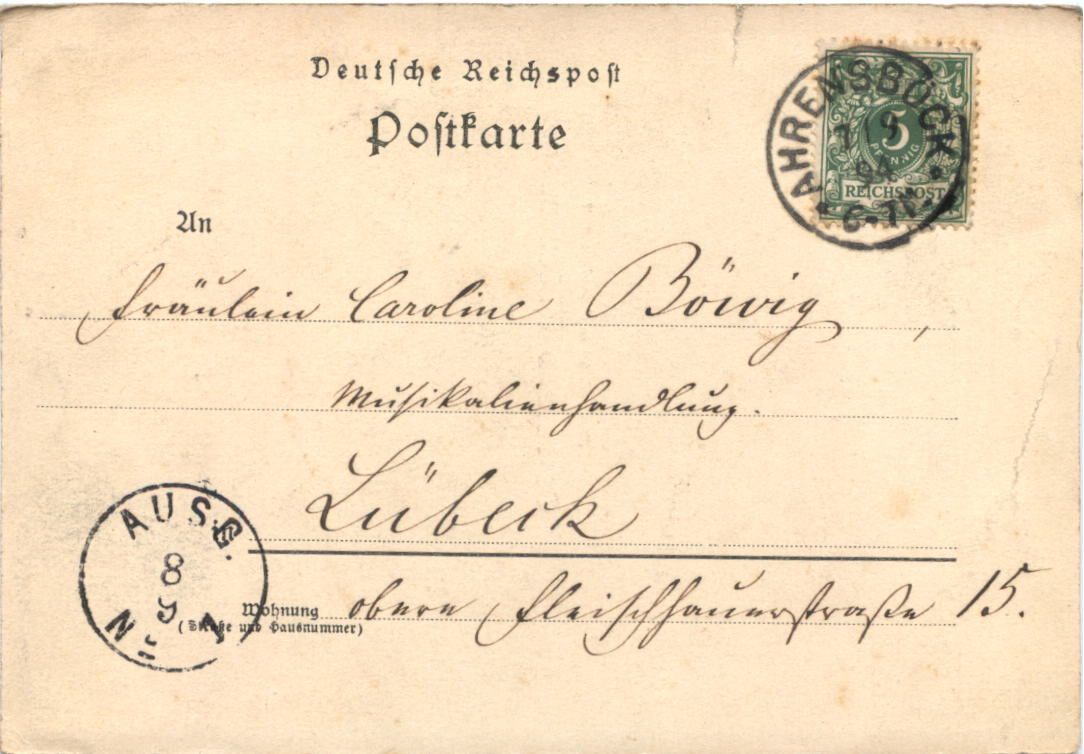 Deutsche Reichspost
Postkarte
AHRENSBÖCK
7 9
94
6-7N.
5
PFENNIG
REICHSPOST
An
Fräulein Caroline Böwig,
Musikalienhandlung.
Lübeck
Wohnung
(Straße und Hausnummer)
obere Fleischhauerstraße 15.
AUSG.
8
9
N